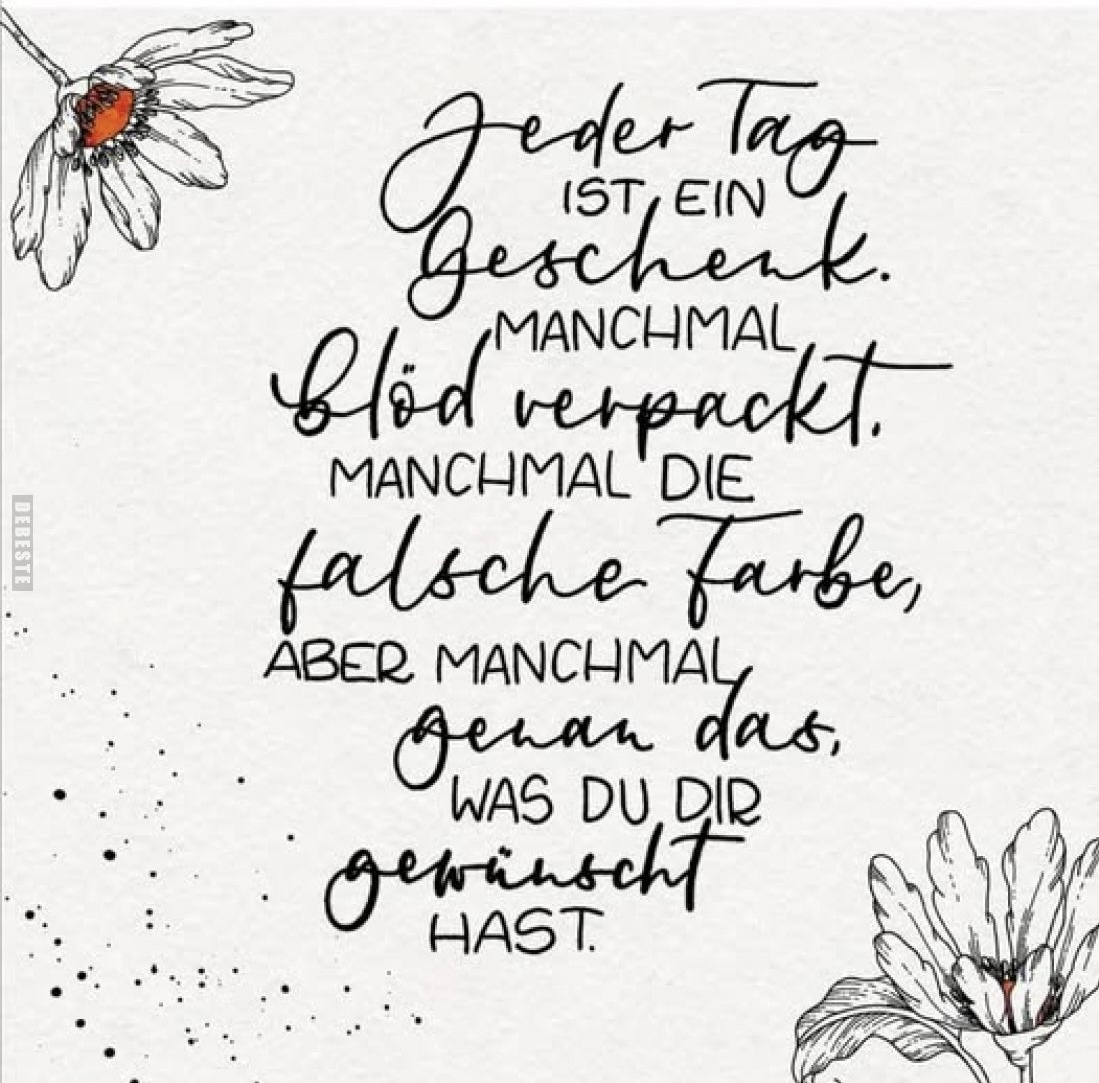 Jeder Tag
IST EIN
Geschenk.
MANCHMAL
blöd verpackt.
MANCHMAL DIE
falsche Farbe,
ABER MANCHMAL
genau das,
WAS DU DIR
gewünscht
HAST.
DEBESTE